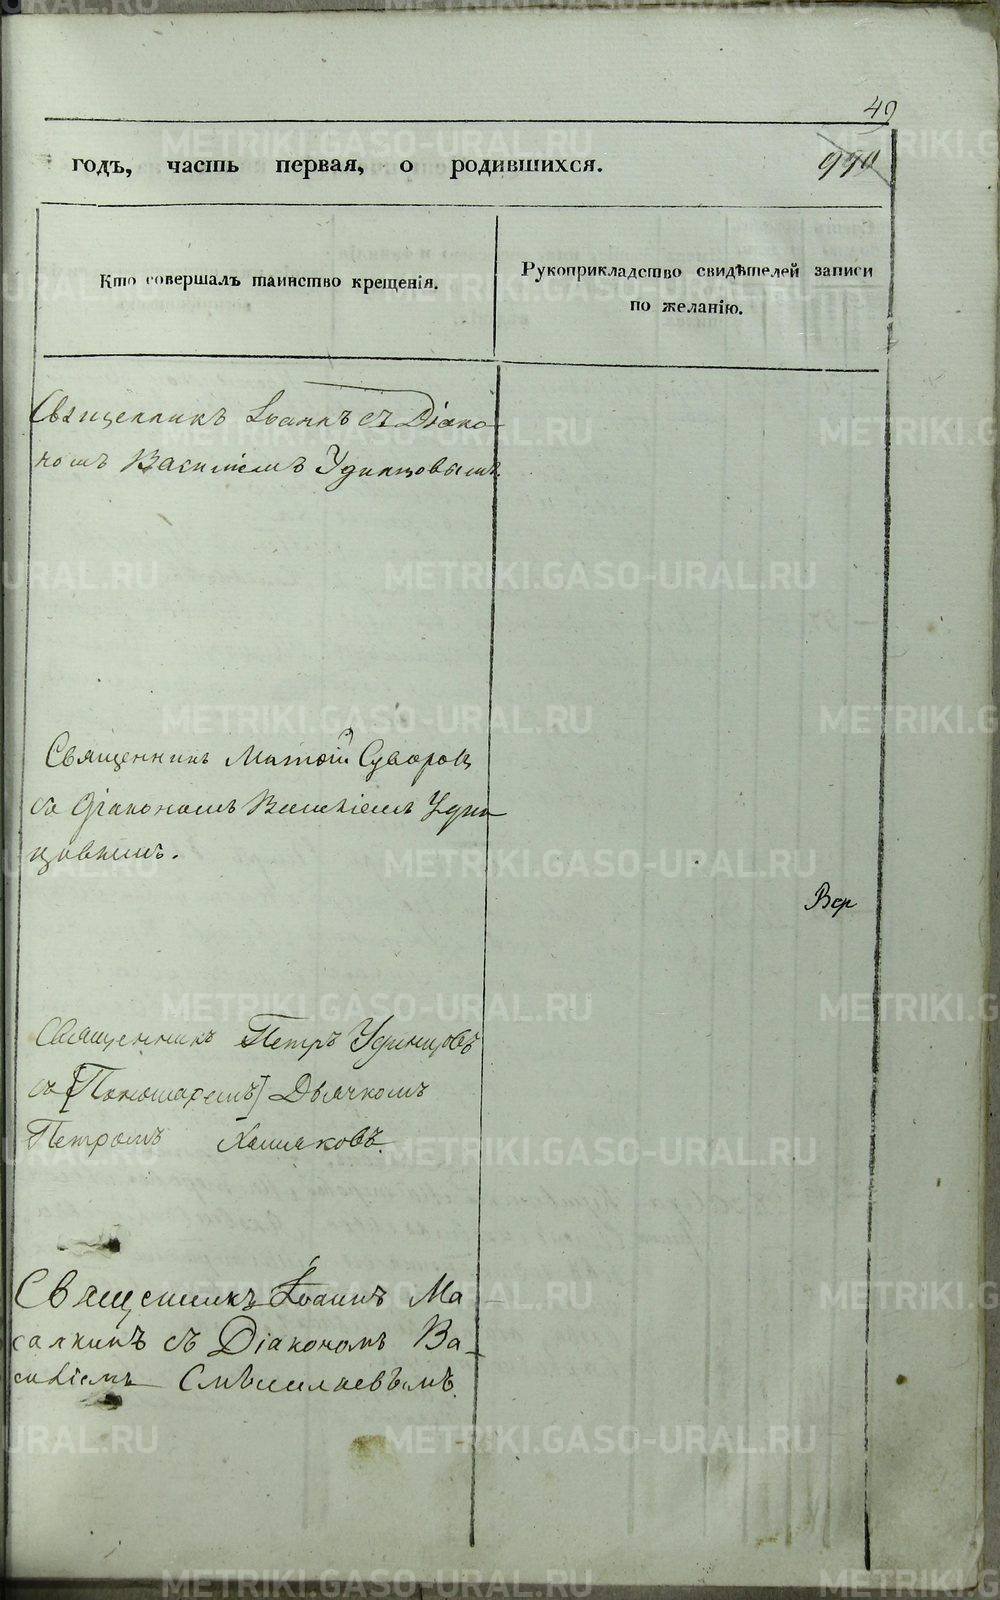 49
990
годъ, часть первая, о родившихся.
Кто совершалъ таинство крещенія.
Рукоприкладство свидѣтелей записи
по желанію.
Священникъ Іоаннъ съ Діако-
номъ Василіемъ Удинцовымъ.
Священникъ Матѳій Суворовъ
съ Діакономъ Василіемъ Удин
цовымъ.
Вер
Священникъ Петръ Удинцовъ
съ [Пономаремъ] Дьячкомъ
Петромъ
Священникъ Іоаннъ Ма
салкинъ съ Діакономъ Ва-
силіемъ
METRIKI.GASO-URAL.RU